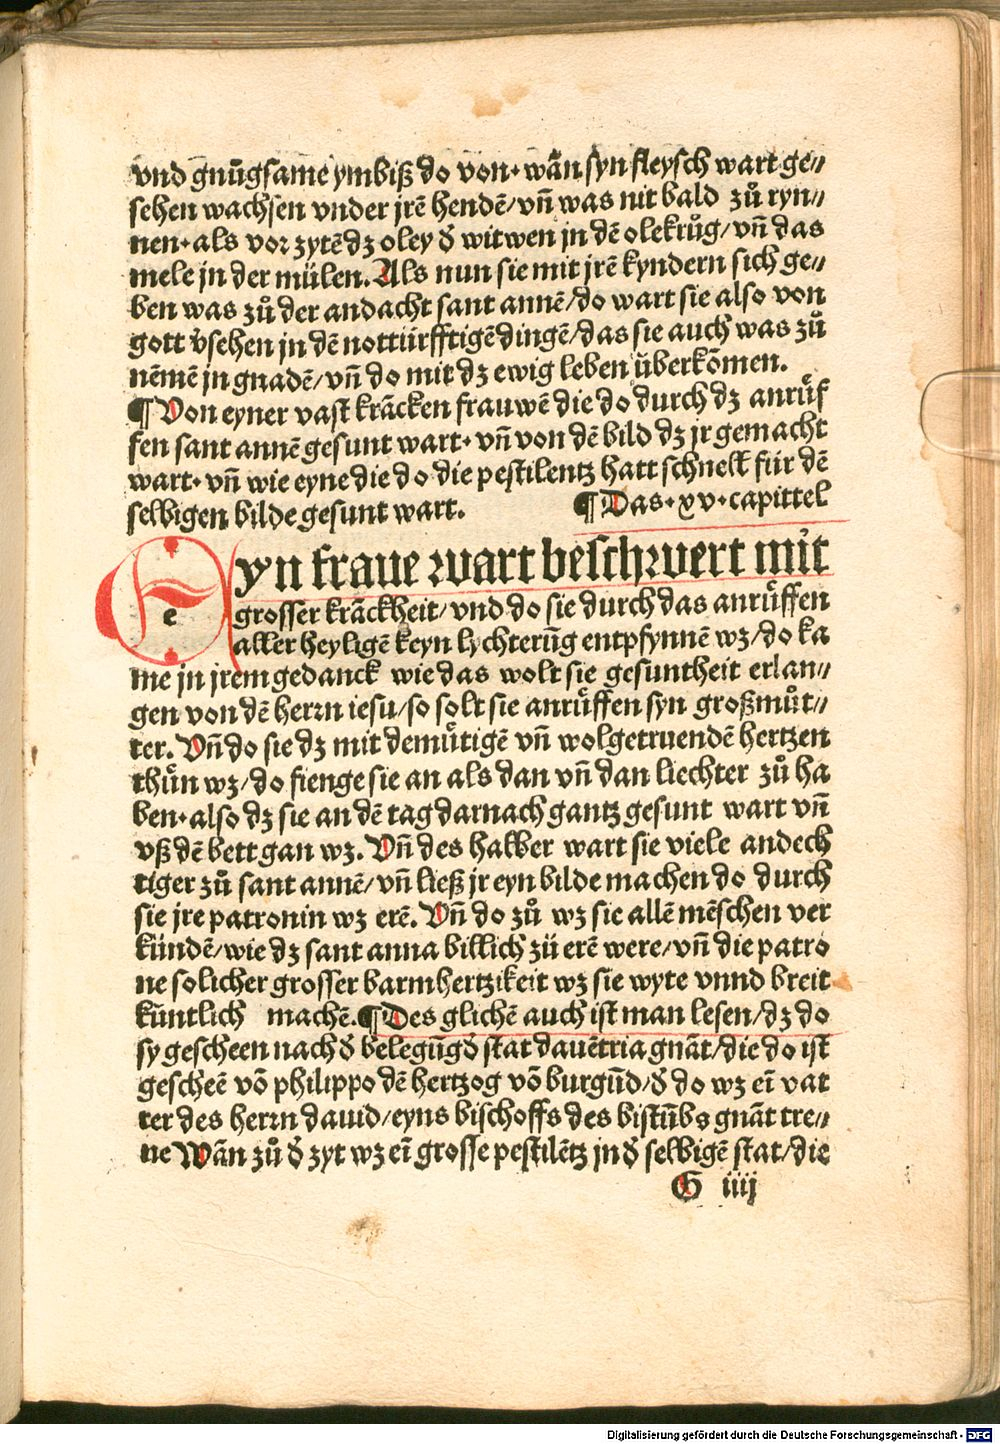 vnd gnůgsame ymbiß do von· wãn syn fleysch wart ge⸗
sehen wachsen vnder jrẽ hendẽ/ vñ was nit bald zů ryn⸗
nen· als vor zytẽ dz oley d̕ witwen jn dẽ olekrůg/ vñ das
mele jn der mülen. Als nun sie mit jrẽ kyndern sich ge⸗
ben was zů der andacht sant annẽ/ do wart sie also von
gott v̕sehen jn dẽ nottürfftigẽ dingẽ/ das sie auch was zů
nẽmẽ jn gnadẽ/ vñ do mit dz ewig leben überkõmen.
¶ Von eyner vast krãcken frauwẽ die do durch dz anrüf
fen sant annẽ gesunt wart· vñ von dẽ bild dz jr gemacht
wart· vñ wie eyne die do die pestilentz hatt schnell für dẽ
selbigen bilde gesunt wart. ¶ Das· xv· capittel
e
yn fraue wart beschwert mit
grosser krãckheit/ vnd do sie durch das anrüffen
aller heyligẽ keyn lychterũg entpfynnẽ wz/ do ka
me jn jrem gedanck wie das wolt sie gesuntheit erlan⸗
gen von dẽ herrn iesu/ so solt sie anrüffen syn großmůt⸗
ter. Vñ do sie dz mit demütigẽ vñ wolgetruendẽ hertzen
thün wz/ do fienge sie an als dan vñ dan liechter zů ha
ben· also dz sie an dẽ tag darnach gantz gesunt wart vñ
vß dẽ bett gan wz. Vñ des halber wart sie viele andech
tiger zů sant annẽ/ vñ ließ jr eyn bilde machen do durch
sie jre patronin wz erẽ. Vñ do zů wz sie allẽ mẽschen ver
kündẽ/ wie dz sant anna billich zü erẽ were/ vñ die patro
ne solicher grosser barmhertzikeit wz sie wyte vnnd breit
küntlich machẽ. ¶ Des glichẽ auch ist man lesen/ dz do
sy gescheen nach d̕ belegũg d̕ stat dauẽtria gnãt/ die do ist
gescheẽ võ philippo dẽ hertzog võ burgũd/ d̕ do wz eĩ vat
ter des herrn dauid/ eyns bischoffs des bistũbs gnãt tre⸗
ne Wãn zů d̕ zyt wz eĩ grosse pestilẽtz jn d̕ selbigẽ stat/ die
G iiij
Digitalisierung gefördert durch die Deutsche Forschungsgemeinschaft - DFG